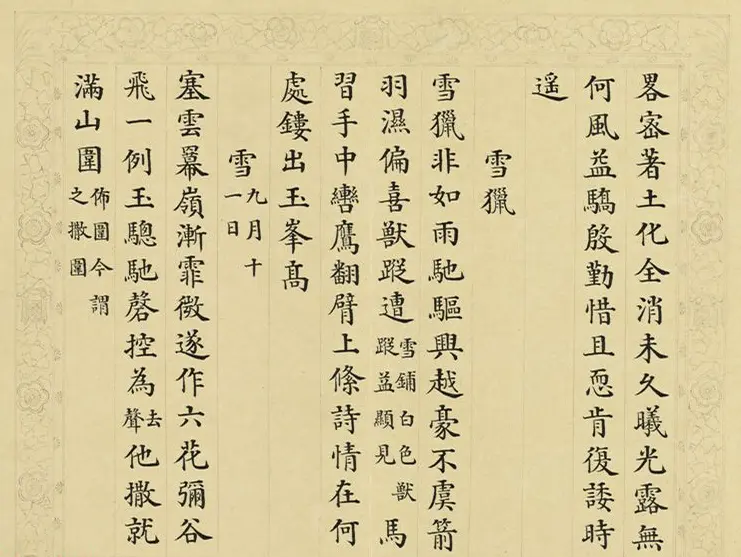 畧容著土化全消未久曦光露無
何風益驕殷勤惜且恧肯復諉時
遥
雪獵
雪獵非如雨馳驅興越豪不虞箭
羽濕偏喜獸蹤遭雪鋪白色獸蹤益顯見馬
習手中轡鷹翻臂上絛詩情在何
處鏤出玉峯髙
雪九月十一日
塞雲羃嶺漸霏微遂作六花彌谷
飛一例玉驄馳磬控為去聲他撒就
滿山圍佈圍今謂之撒圍